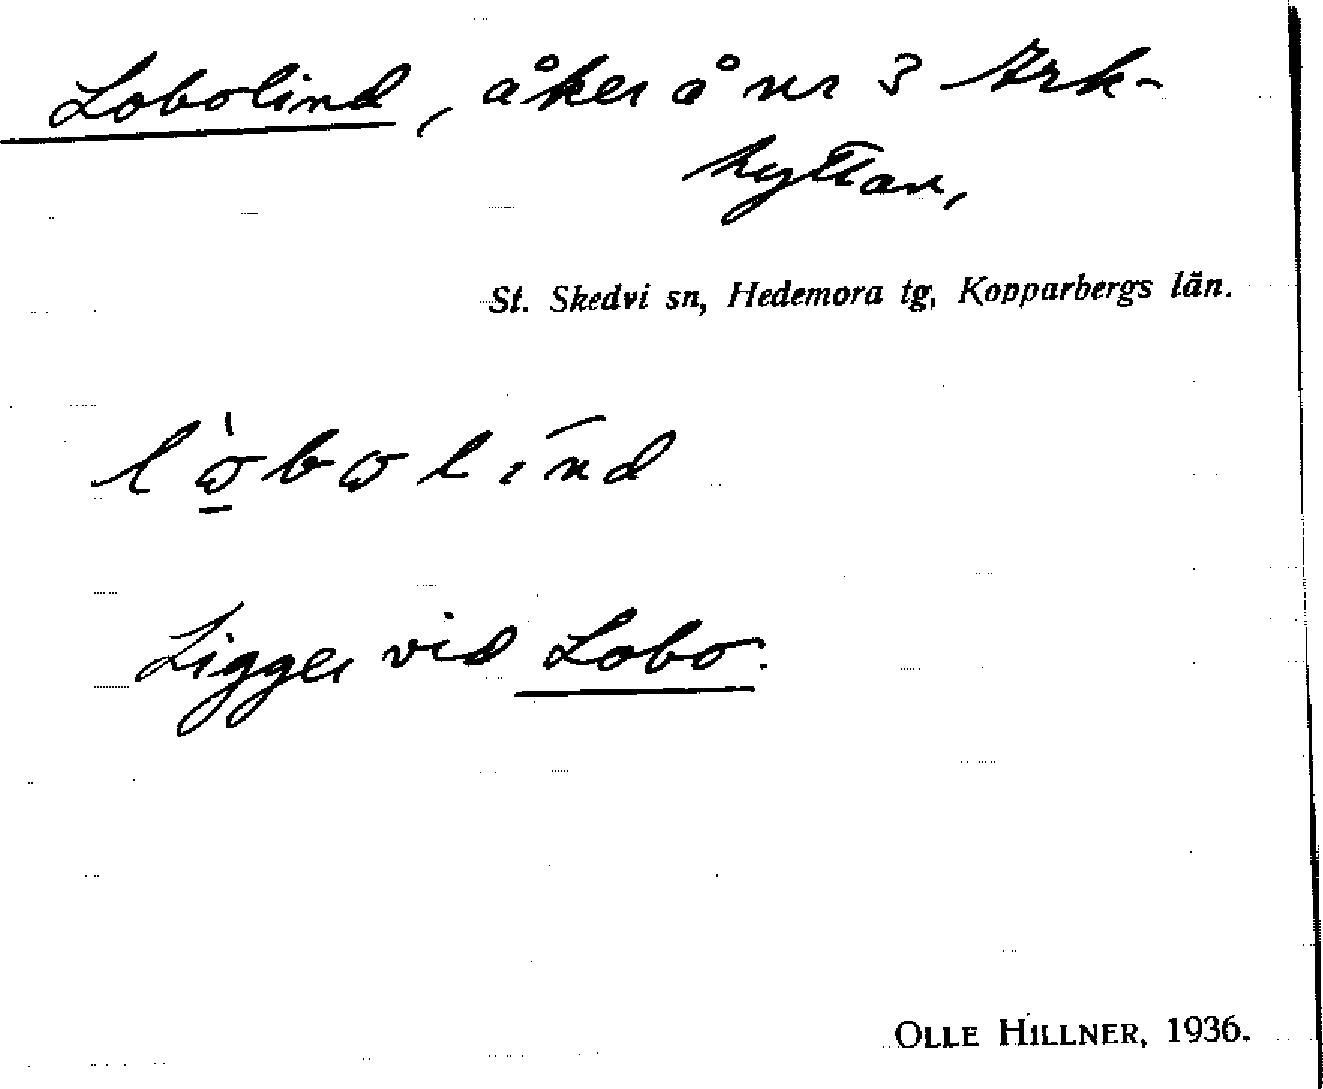 Lobolind, åker å nr 3 Ark-
hyttan,
St. Skedvi sn, Hedemora tg, Kopparbergs län.
lὼ̱bωlınd
Ligger vid Lobo.
OLLE HILLNER, 1936.